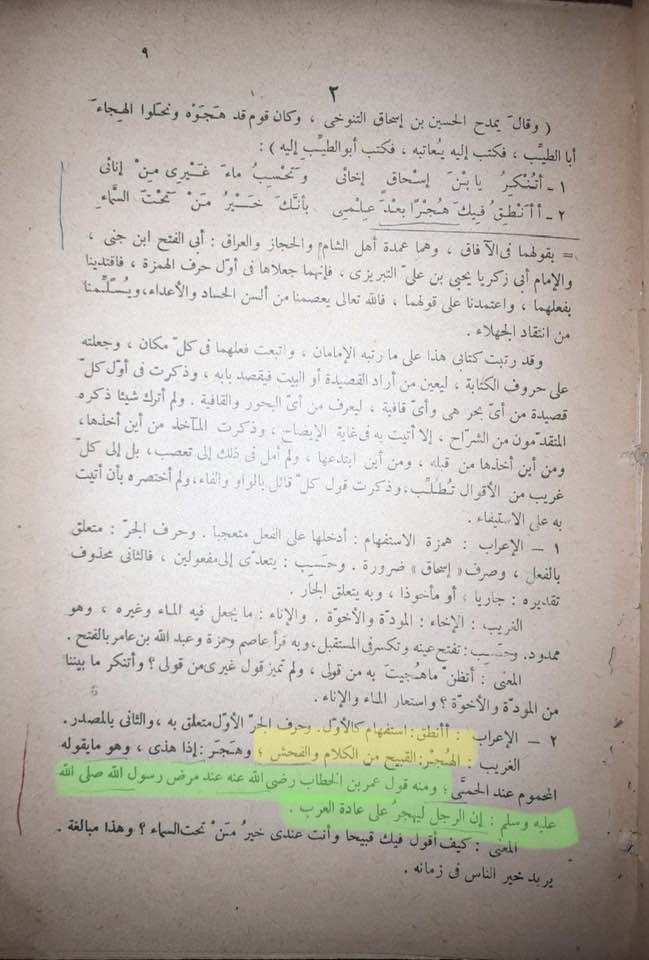 ٩
٢
( وقالَ يمدح الحسين بن إسحاق التنوخى ، وكان قوم قد هَجَوْه ونحَلوا الهِجاءَ
أبا الطيِّب ، فكتب إليه يُعاتبه ، فكتب أبوالطيِّب إليه ) :
١ – أَتُنْكِرُ يا بْنَ إِسْحاقٍ إخائى وَتَحْسِبُ ماءَ غَيرِى مِنْ إنائى
٢ – أأَنْطِقُ فِيكَ هُجْرًا بعْدَ عِلْمِى بأنَّكَ خَيْرُ مَنْ تَحْتَ السَّماءِ
= بقولهما فى الآفاق ، وهما عمدة أهل الشام والحجاز والعراق : أبى الفتح ابن جنى ،
والإمام أبى زكريا يحيى بن علىّ التبريزى ، فإنهما جعلاها فى أوّل حرف الهمزة ، فاقتدينا
بفعلهما ، واعتمدنا على قولهما ، فالله تعالى يعصمنا من ألسن الحساد والأعداء، ويُسَلِّمنا
من انتقاد الجهلاء .
وقد رتبت كتابى هذا على ما رتبه الإمامان ، واتبعت فعلهما فى كلّ مكان ، وجعلته
على حروف الكتابة ، ليعين من أراد القصيدة أو البيت فيقصد بابه ، وذكرت فى أوّل كلّ
قصيدة من أىّ بحر هى وأىّ قافية ، ليعرف من أىّ البحور والقافية . ولم أترك شيئا ذكره
المتقدّمون من الشرّاح ، إلا أتيت به فى غاية الإيضاح ، وذكرت المآخذ من أين أخذها،
ومن أين أخذها من قبله ، ومن أين ابتدعها ، ولم أمل فى ذلك إلى تعصب، بل إلى كلّ
غريب من الأقوال تُطُلِّب، وذكرت قول كلّ قائل بالواو والفاء، ولم أختصره بأن أتيت
به على الاستيفاء .
١ – الإعراب : همزة الاستفهام : أدخلها على الفعل متعجبا . وحرف الجرّ : متعلق
بالفعل ، وصرف « إسحاق » ضرورة . وحَسِب : يتعدّى إلى مفعولين ، فالثانى محذوف
تقديره : جاريا ؛ أو مأخوذا ، وبه يتعلق الجار .
الغريب : الإخاء : المودّة والأخوّة . والإناء : ما يجعل فيه الماء وغيره ، وهو
ممدود. وحَسِب: تفتح عينه وتكسر فى المستقبل، وبه قرأ عاصم وحمزة وعبد الله بن عامر بالفتح .
المعنى : أتظن ماهُجِيتَ به من قولى ، ولم تميز قول غيرى من قولى ؟ وأتنكر ما بيننا
من المودّة والأخوّة ؟ واستعار الماء والإناء .
٢ – الإعراب : أأنطق : استفهام كالأوّل. وحرف الجرّ الأوّل متعلق به ، والثانى بالمصدر .
الغريب : الهُجْر: القبيح من الكلام والفحش ؛ وهَجَر : إذا هذى ، وهو مايقوله
المحموم عند الحمَّى ؛ ومنه قول عمر بن الخطاب رضى الله عنه عند مرض رسول الله صلى الله
عليه وسلم : إن الرجل ليهجرُ على عادة العرب .
المعنى : كيف أقول فيك قبيحا وأنت عندى خيرُ مَنْ تحت السماء ؟ وهذا مبالغة .
يريد خير الناس فى زمانه .